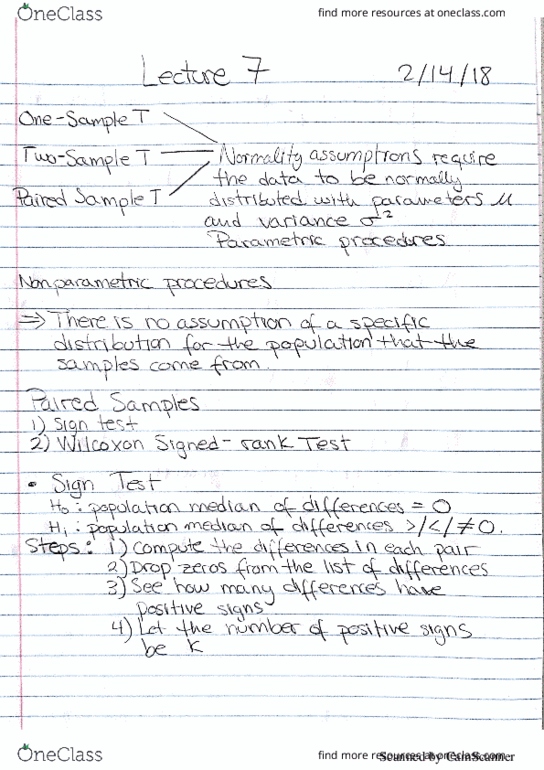 OneClass
find more resources at oneclass.com
Lecture 7
2/14/18
One-Sample T
Two-Sample T
Paired Sample T
Normality assumptions require
the data to be normally
distributed with parameters μ
and variance σ²
Parametric procedures
Nonparametric procedures
⇒ There is no assumption of a specific
distribution for the population that the
samples come from.
Paired Samples
1) Sign test
2) Wilcoxon Signed-rank Test
• Sign Test
H₀: population median of differences = 0
H₁: population median of differences >/</≠0.
Steps: 1) Compute the differences in each pair
2) Drop zeros from the list of differences
3) See how many differences have
positive signs
4) Let the number of positive signs
be K
OneClass
find more resources at oneclass.com
Scanned by CamScanner